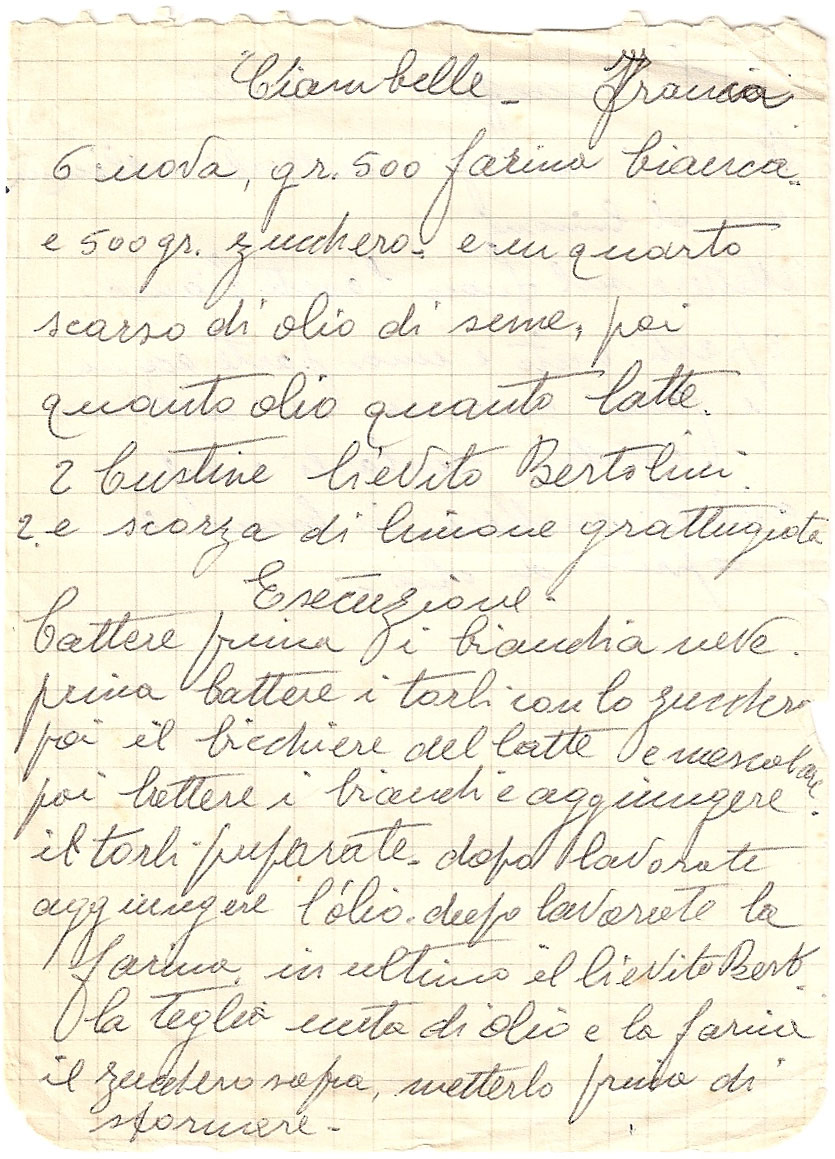 Ciambelle - Franca
6 uova, gr. 500 farina bianca
e 500 gr. zucchero - e un quarto
scarso di olio di seme, poi
quanto olio quanto latte.
2 bustine lievito Bertolini.
2. e scorza di limone grattugiata
Esecuzione -
battere prima i bianchi a neve.
prima battere i torli con lo zucchero
poi il bicchiere del latte e mescolare
poi battere i bianchi e aggiungere.
il torli preparate - dopo lavorate
aggiungere l'olio. dopo lavorate la
farina, in ultimo il lievito Bert.
la teglia unta di olio e la farina
il zucchero sopra, metterlo prima di
sfornare -